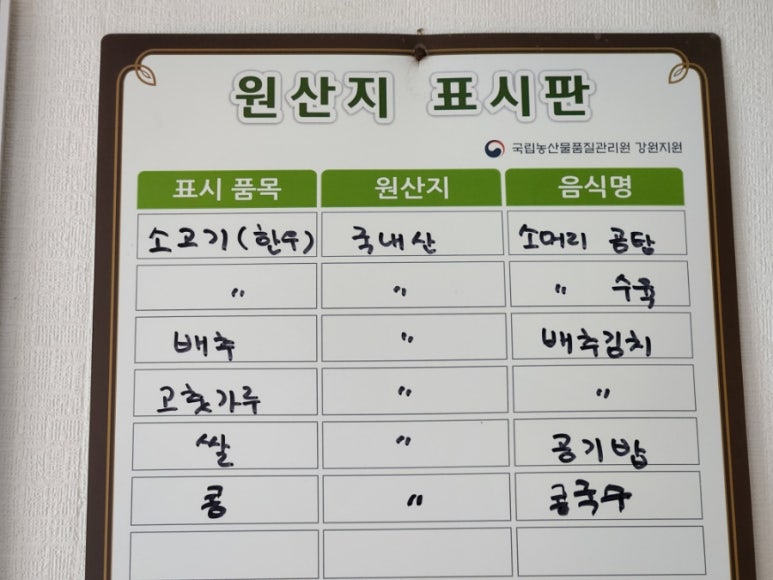 원산지 표시판
국립농산물품질관리원 강원지원
표시 품목 원산지 음식명
소고기(한우) 국내산 소머리 곰탕
〃 〃 〃 수육
배추 〃 배추김치
고춧가루 〃 〃
쌀 〃 공기밥
콩 〃 콩국수